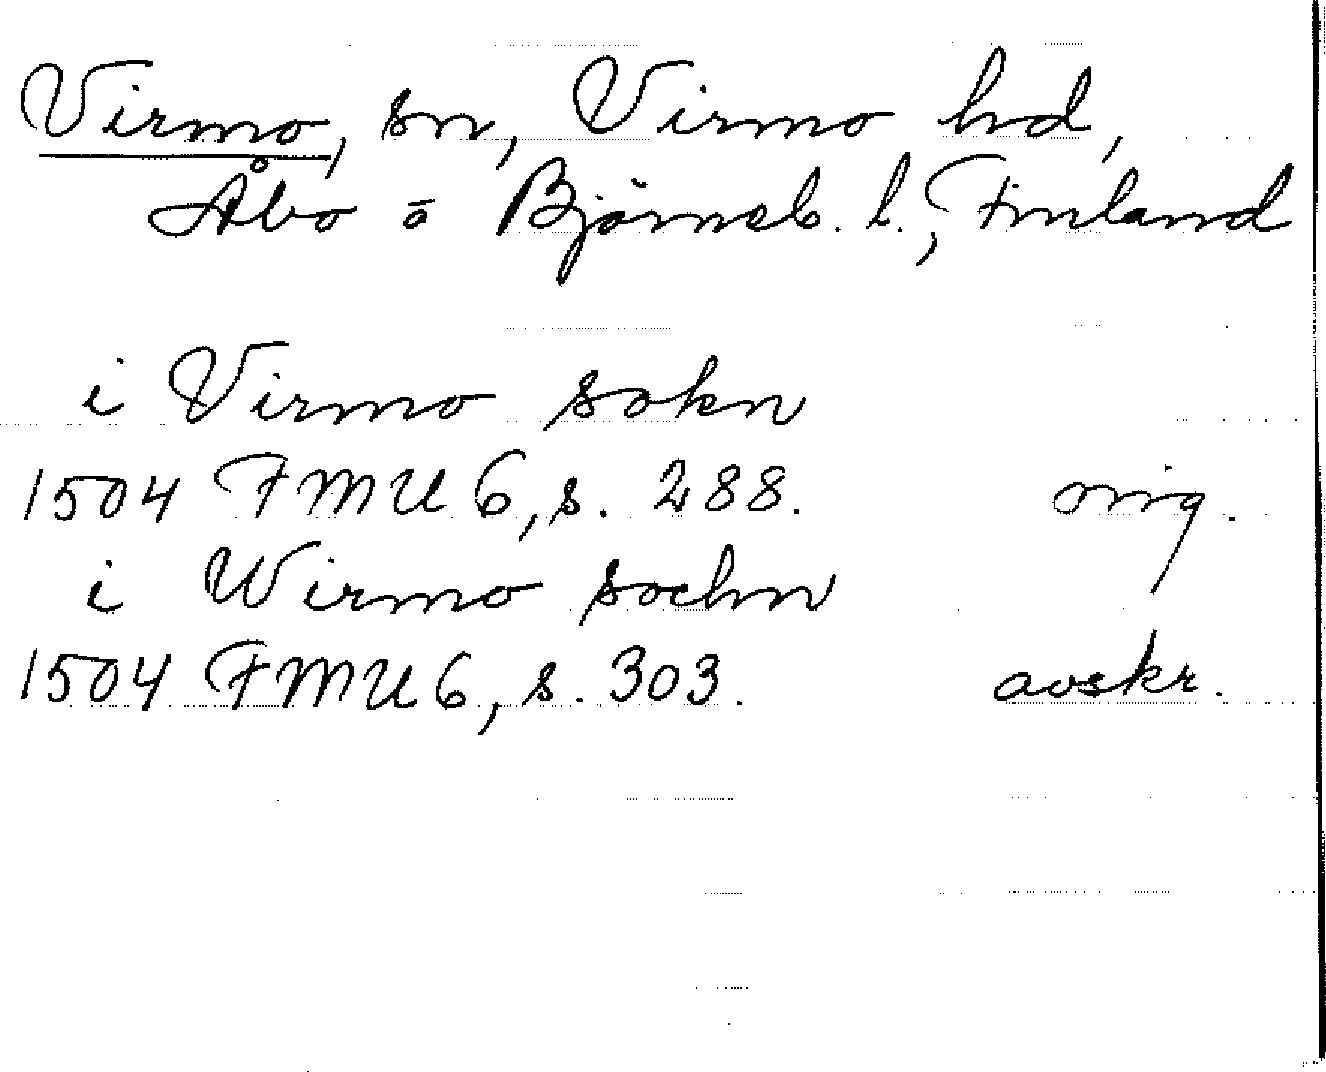 Virmo, sn, Virmo hd,
Åbo o Björneb. l., Finland
i Virmo sokn
1504 FMU 6, s. 288. orig.
i Wirmo sochn
1504 FMU 6, s. 303. avskr.